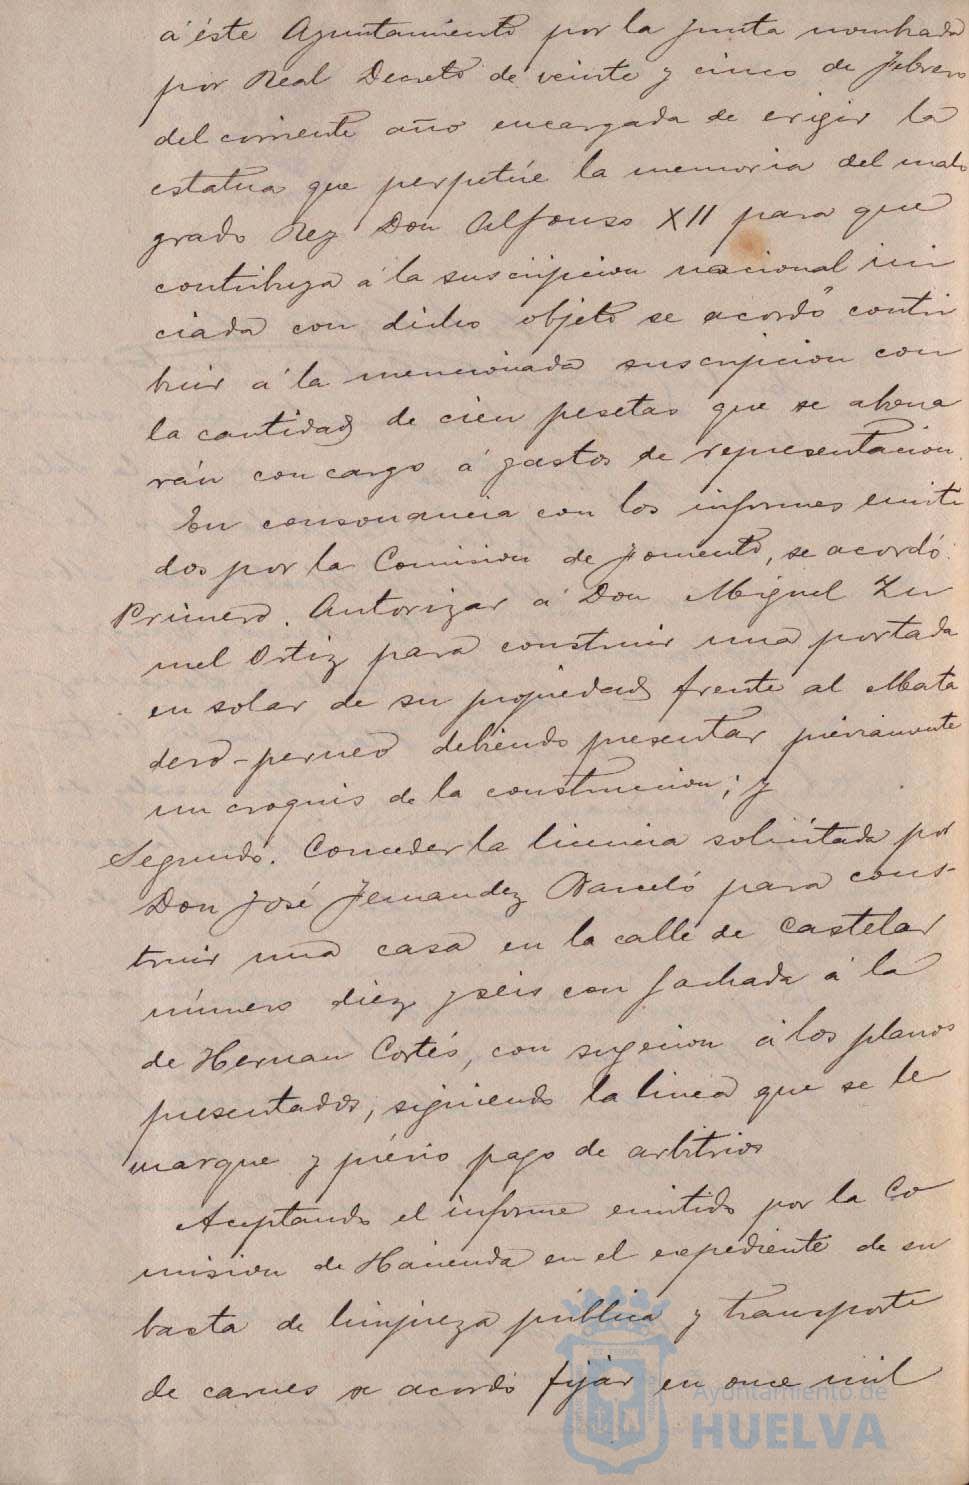 á éste Ayuntamiento por la junta nombrada
por Real Decreto de veinte y cinco de Febrero
del corriente año encargada de erigir la
estatua que perpetúe la memoria del malo
grado Rey Don Alfonso XII para que
contribuya á la suscripcion nacional ini
ciada con dicho objeto se acordó contri
buir á la mencionada suscripcion con
la cantidad de cien pesetas que se abona
rán con cargo á gastos de representacion.
En consonancia con los informes emiti
dos por la Comision de Fomento, se acordó:
Primero. Autorizar á Don Miguel Zu
mel Ortiz para construir una portada
en solar de su propiedad frente al Mata
dero-perneo debiendo presentar préviamente
un croquis de la construccion; y
Segundo. Conceder la licencia solicitada por
Don José Fernandez Barceló para cons-
truir una casa en la calle de Castelar
número diez y seis con fachada á la
de Hernan Cortés, con sugecion á los planos
presentados, siguiendo la linea que se le
marque y prévio pago de arbitrios
Aceptando el informe emitido por la Co
mision de Hacienda en el expediente de su
basta de limpieza pública y transporte
de carnes se acordó fijar en once mil
Ayuntamiento de
HUELVA